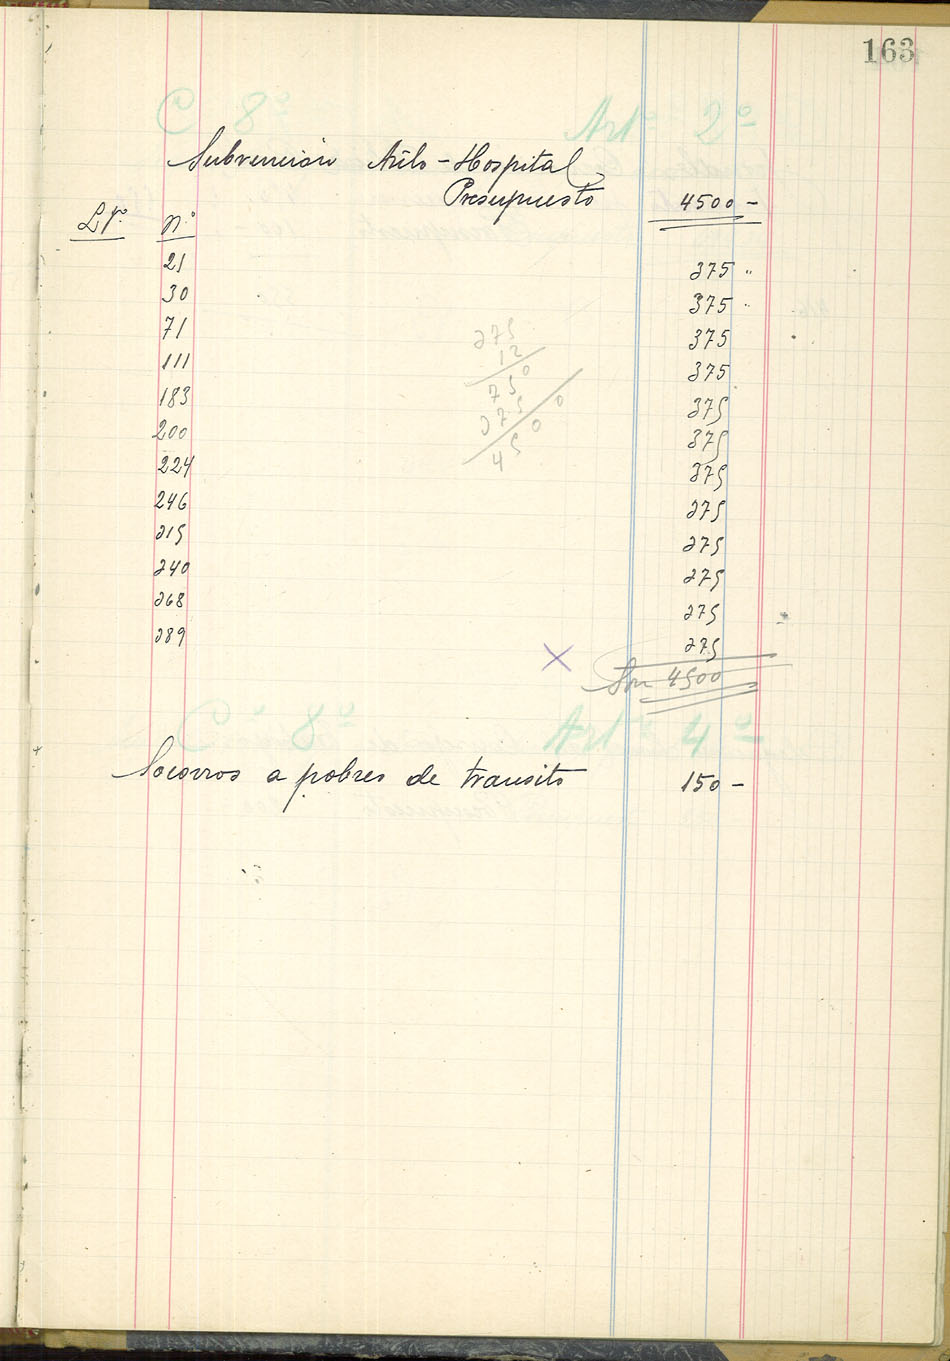 163
C 8º Artº 2º
Subvención Asilo-Hospital
Presupuesto 4500 -
Lº Nº
21 375 "
30 375 "
71 375
111 375
183 375
200 375
224 375
246 375
315 375
340 375
368 375
389 375
375
12
750
375
4500
X
4500
Cº 8º Artº 4º
Socorros a pobres de transito 150 -